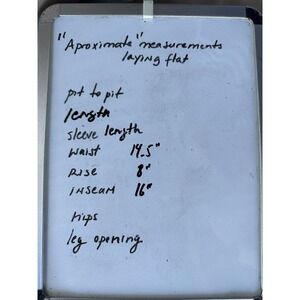 "Aproximate" measurements
laying flat
pit to pit
length
sleeve length
waist 14.5"
rise 8"
inseam 16"
hips
leg opening